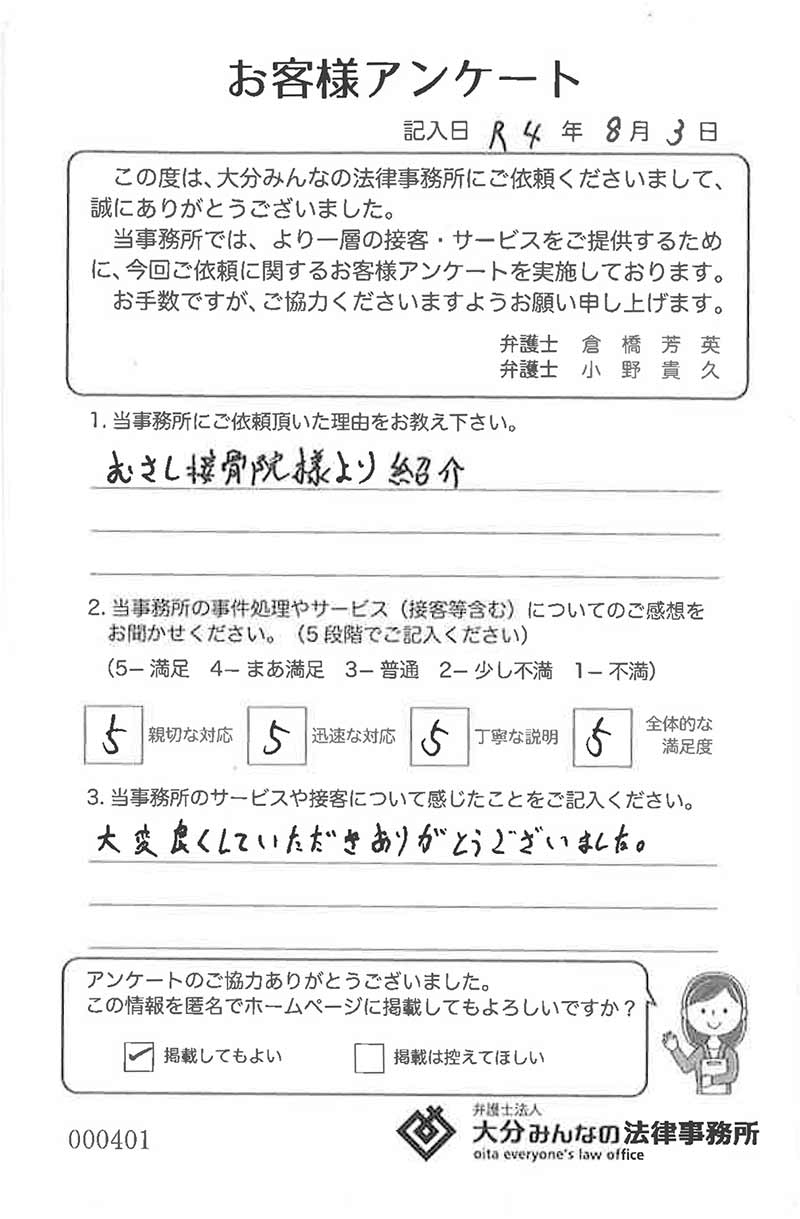 お客様アンケート
記入日 R4 年 8月 3日
この度は、大分みんなの法律事務所にご依頼くださいまして、
誠にありがとうございました。
当事務所では、より一層の接客・サービスをご提供するため
に、今回ご依頼に関するお客様アンケートを実施しております。
お手数ですが、ご協力くださいますようお願い申し上げます。
弁護士 倉橋芳英
弁護士 小野貴久
1. 当事務所にご依頼頂いた理由をお教え下さい。
むさし接骨院様より紹介
2. 当事務所の事件処理やサービス（接客等含む）についてのご感想を
お聞かせください。（5段階でご記入ください）
（5－満足 4－まあ満足 3－普通 2－少し不満 1－不満）
5 親切な対応 5 迅速な対応 5 丁寧な説明 5 全体的な
満足度
3. 当事務所のサービスや接客について感じたことをご記入ください。
大変良くしていただきありがとうございました。
アンケートのご協力ありがとうございました。
この情報を匿名でホームページに掲載してもよろしいですか？
✓ 掲載してもよい □ 掲載は控えてほしい
000401
弁護士法人
大分みんなの法律事務所
oita everyone's law office